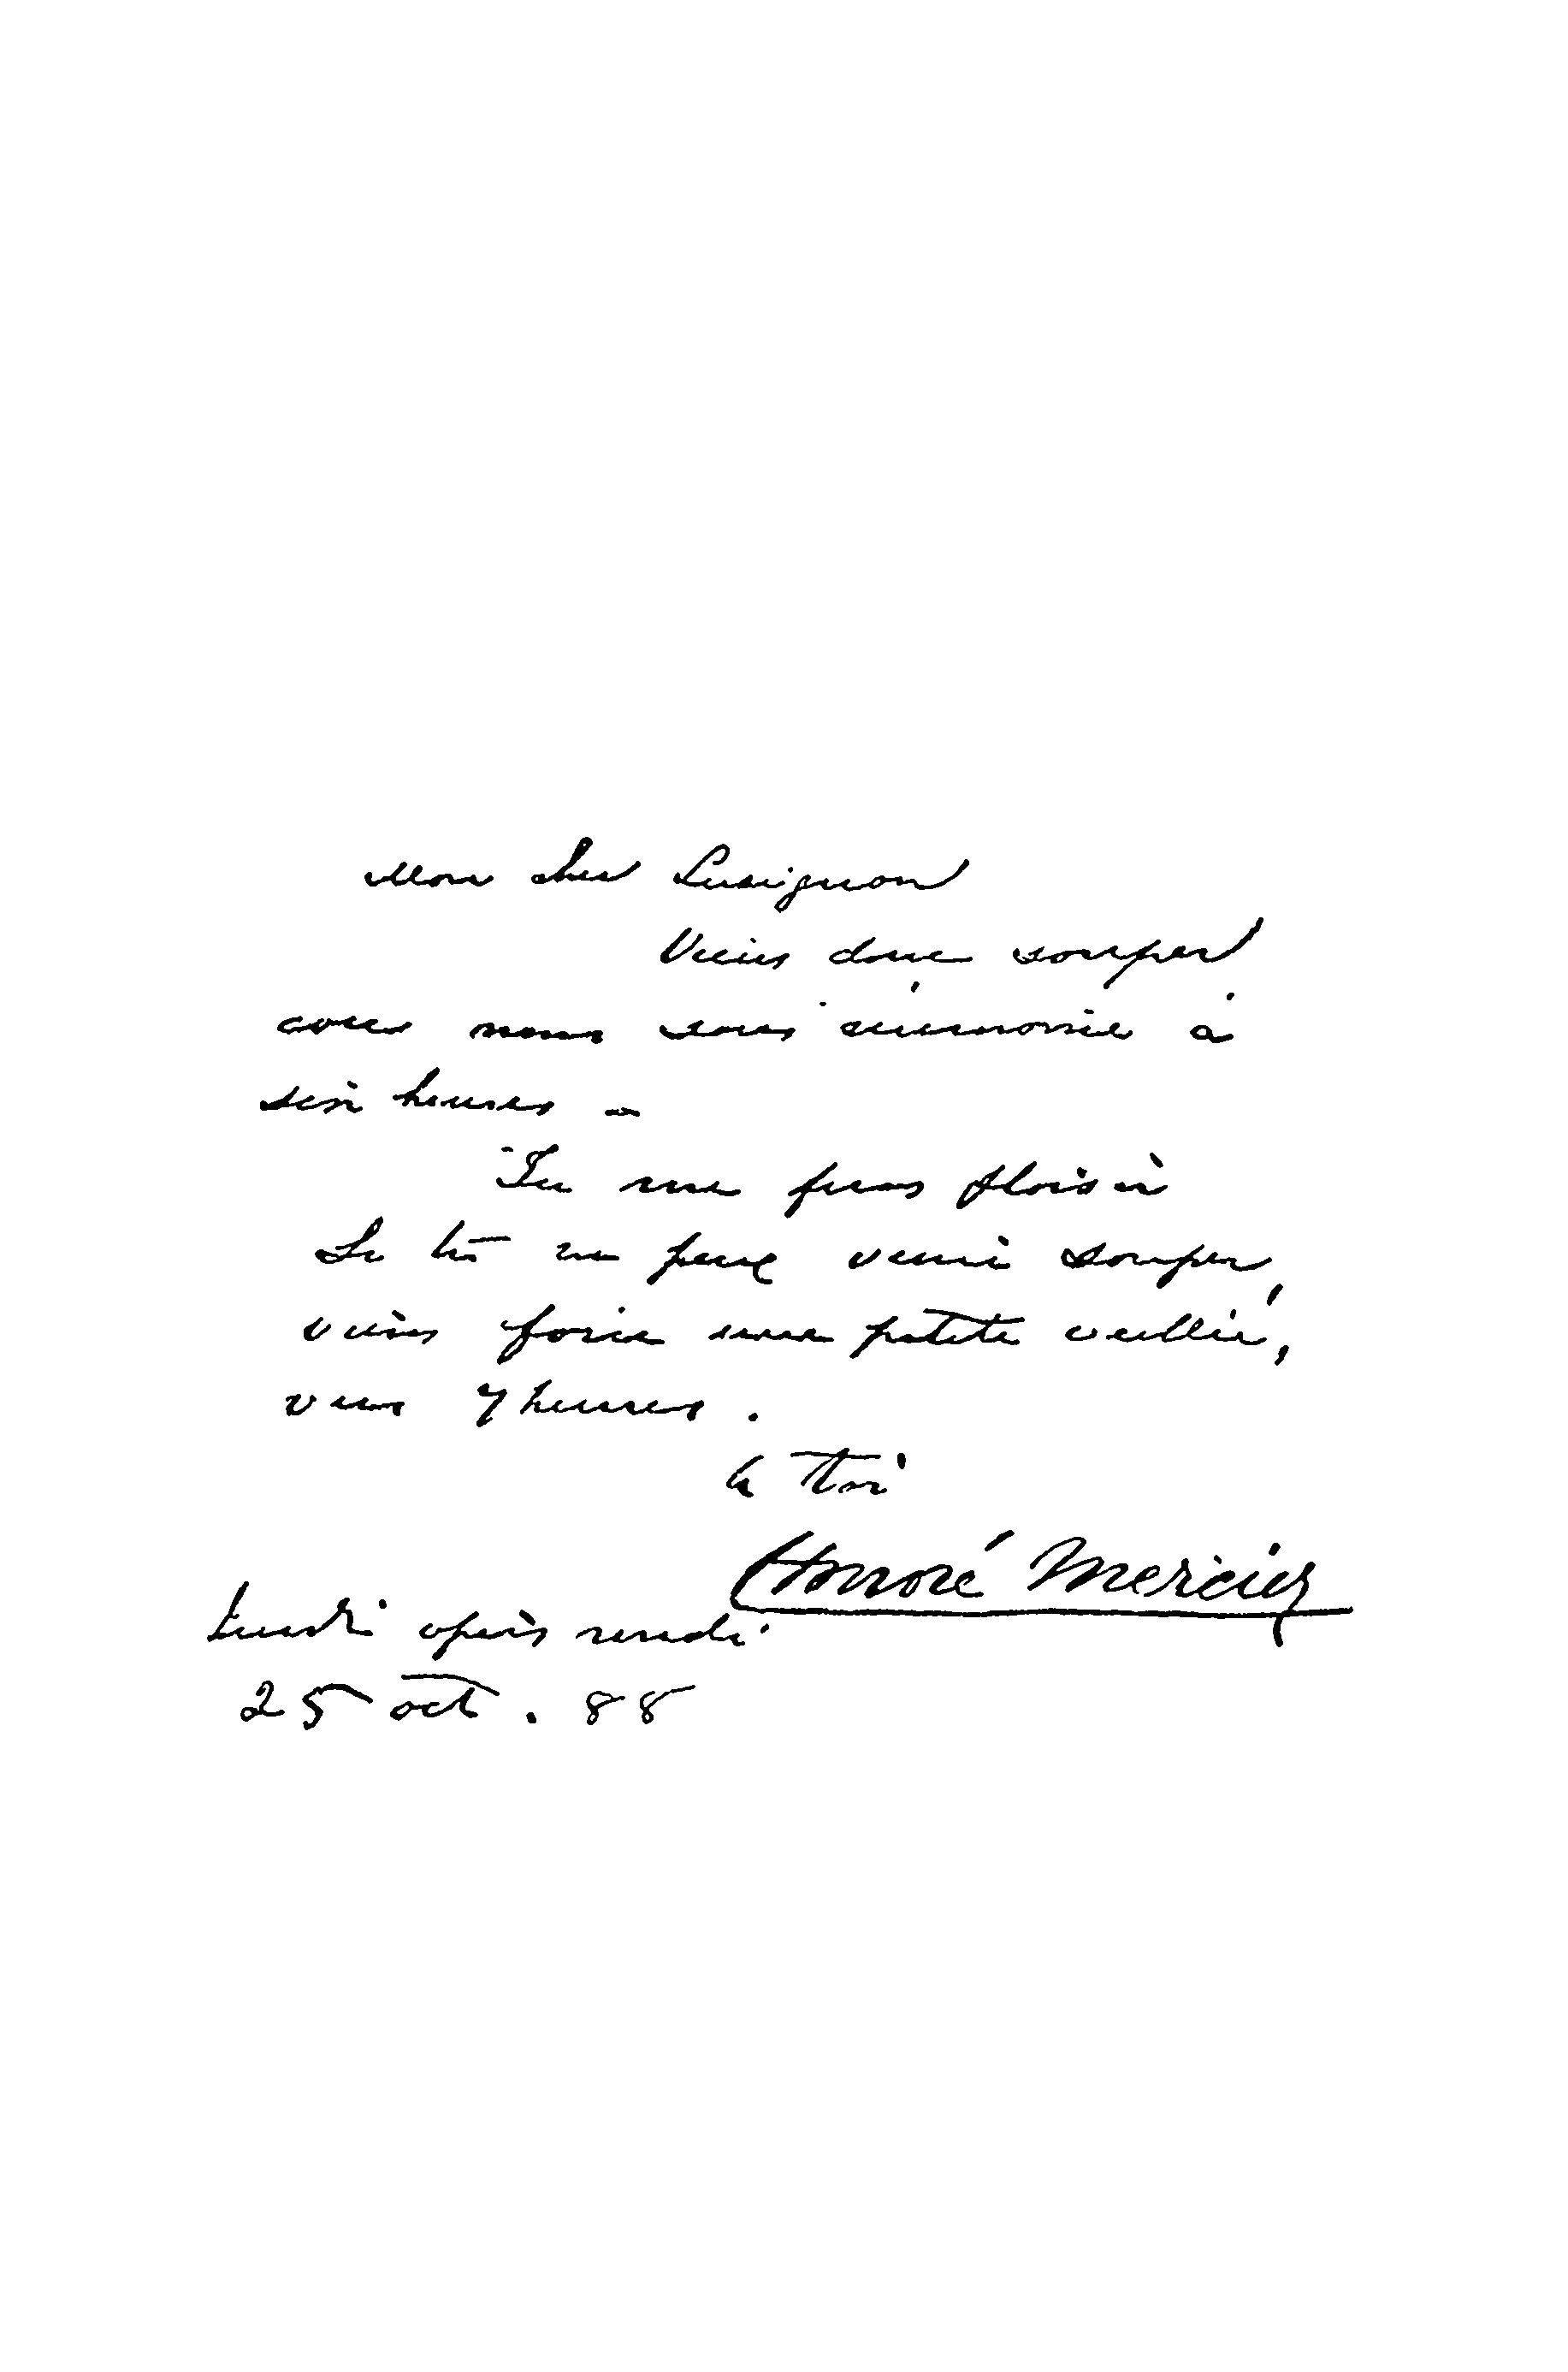 Mon cher Lusignan
Viens donc souper
avec nous sans cérémonie à
six heures -
Tu me feras plaisir
Si tu ne peux venir souper,
viens faire une petite veillée,
vers 7 heures.
à toi
Honoré Mercier
Lundi après midi
25 oct. 88